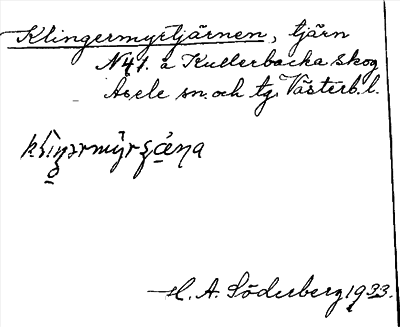 Klingermyrtjärnen, tjärn
N41. å Kullerbacka skog
Åsele sn. och tg. Västerb. l.
H. A. Söderberg 1933.